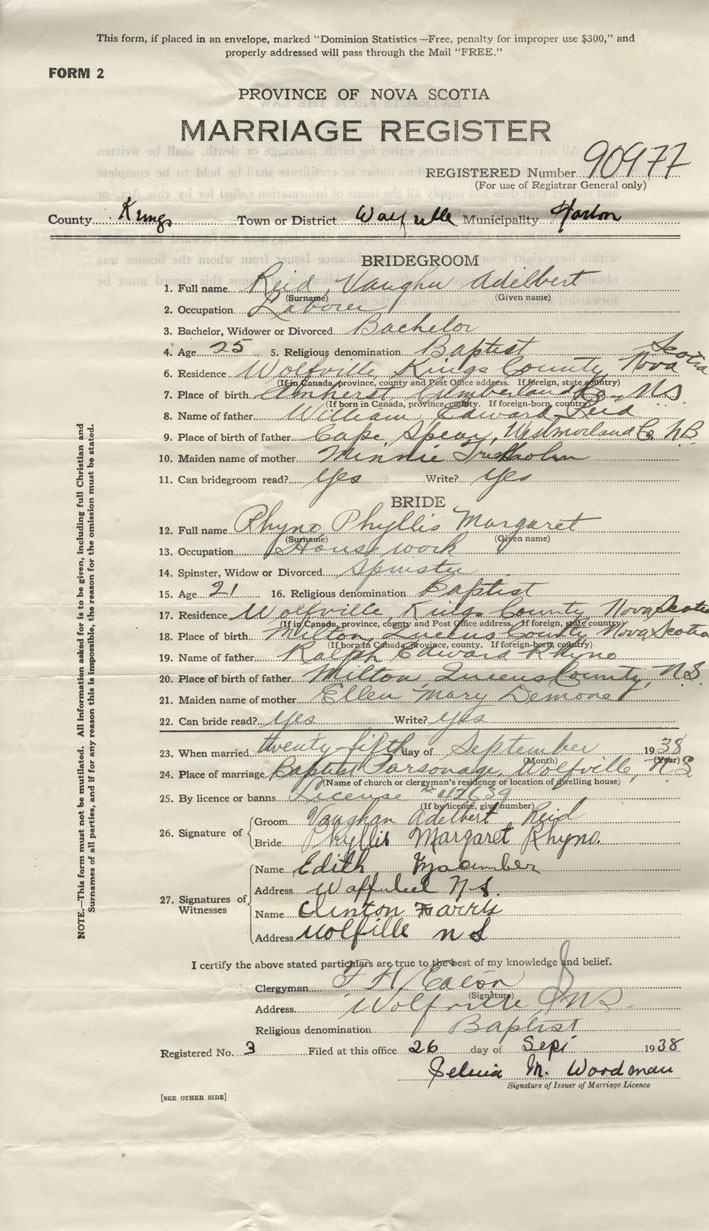 This form, if placed in an envelope, marked "Dominion Statistics—Free, penalty for improper use $300," and
properly addressed will pass through the Mail "FREE."
FORM 2
PROVINCE OF NOVA SCOTIA
MARRIAGE REGISTER
REGISTERED Number 90977
(For use of Registrar General only)
County Kings Town or District Wolfville Municipality Horton
BRIDEGROOM
1. Full name Reid, Vaughn Adelbert
(Surname) (Given name)
2. Occupation Laborer
3. Bachelor, Widower or Divorced Bachelor
4. Age 25 5. Religious denomination Baptist
6. Residence Wolfville, Kings County Nova Scotia
(If in Canada, province, county and Post Office address. If foreign, state country)
7. Place of birth Amherst Cumberland Co., N.S.
(If born in Canada, province, county. If foreign-born, country)
8. Name of father William Edward Reid
9. Place of birth of father Cape Spear, Westmorland Co. N.B.
10. Maiden name of mother Minnie
11. Can bridegroom read? yes Write? yes
BRIDE
12. Full name Rhyno, Phyllis Margaret
(Surname) (Given name)
13. Occupation Housework
14. Spinster, Widow or Divorced Spinster
15. Age 21 16. Religious denomination Baptist
17. Residence Wolfville, Kings County Nova Scotia
(If in Canada, province, county and Post Office address. If foreign, state country)
18. Place of birth Milton, Queens County Nova Scotia
(If born in Canada, province, county. If foreign-born, country)
19. Name of father Ralph Edward Rhyno
20. Place of birth of father Milton, Queens County, N.S.
21. Maiden name of mother Ellen Mary Demone
22. Can bride read? yes Write? yes
23. When married twenty-fifth day of September 1938
(Month) (Year)
24. Place of marriage Baptist Parsonage, Wolfville, N.S.
(Name of church or clergyman's residence or location of dwelling house)
25. By licence or banns License
(If by licence, give number)
26. Signature of Groom Vaughan Adelbert Reid
Bride Phyllis Margaret Rhyno.
27. Signatures of Witnesses Name Edith
Address N.S.
Name Clinton
Address Wolfville N S
I certify the above stated particulars are true to the best of my knowledge and belief.
Clergyman F. H. Eaton
(Signature)
Address Wolfville, N.S.
Religious denomination Baptist
Registered No. 3 Filed at this office 26 day of Sept 1938
M. Woodman
Signature of Issuer of Marriage Licence
[SEE OTHER SIDE]
NOTE.—This form must not be mutilated. All information asked for is to be given, including full Christian and
Surnames of all parties, and if for any reason this is impossible, the reason for the omission must be stated.